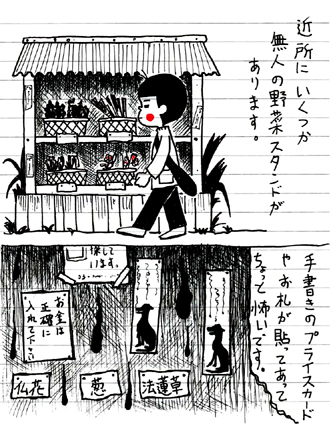 近所にいくつか
無人の野菜スタンドが
あります。
手書きのプライスカード
やお札が貼ってあって
ちょっと怖いです。
探して
います。
お金は
正確に
入れて下さい
仏花
葱
法蓮草